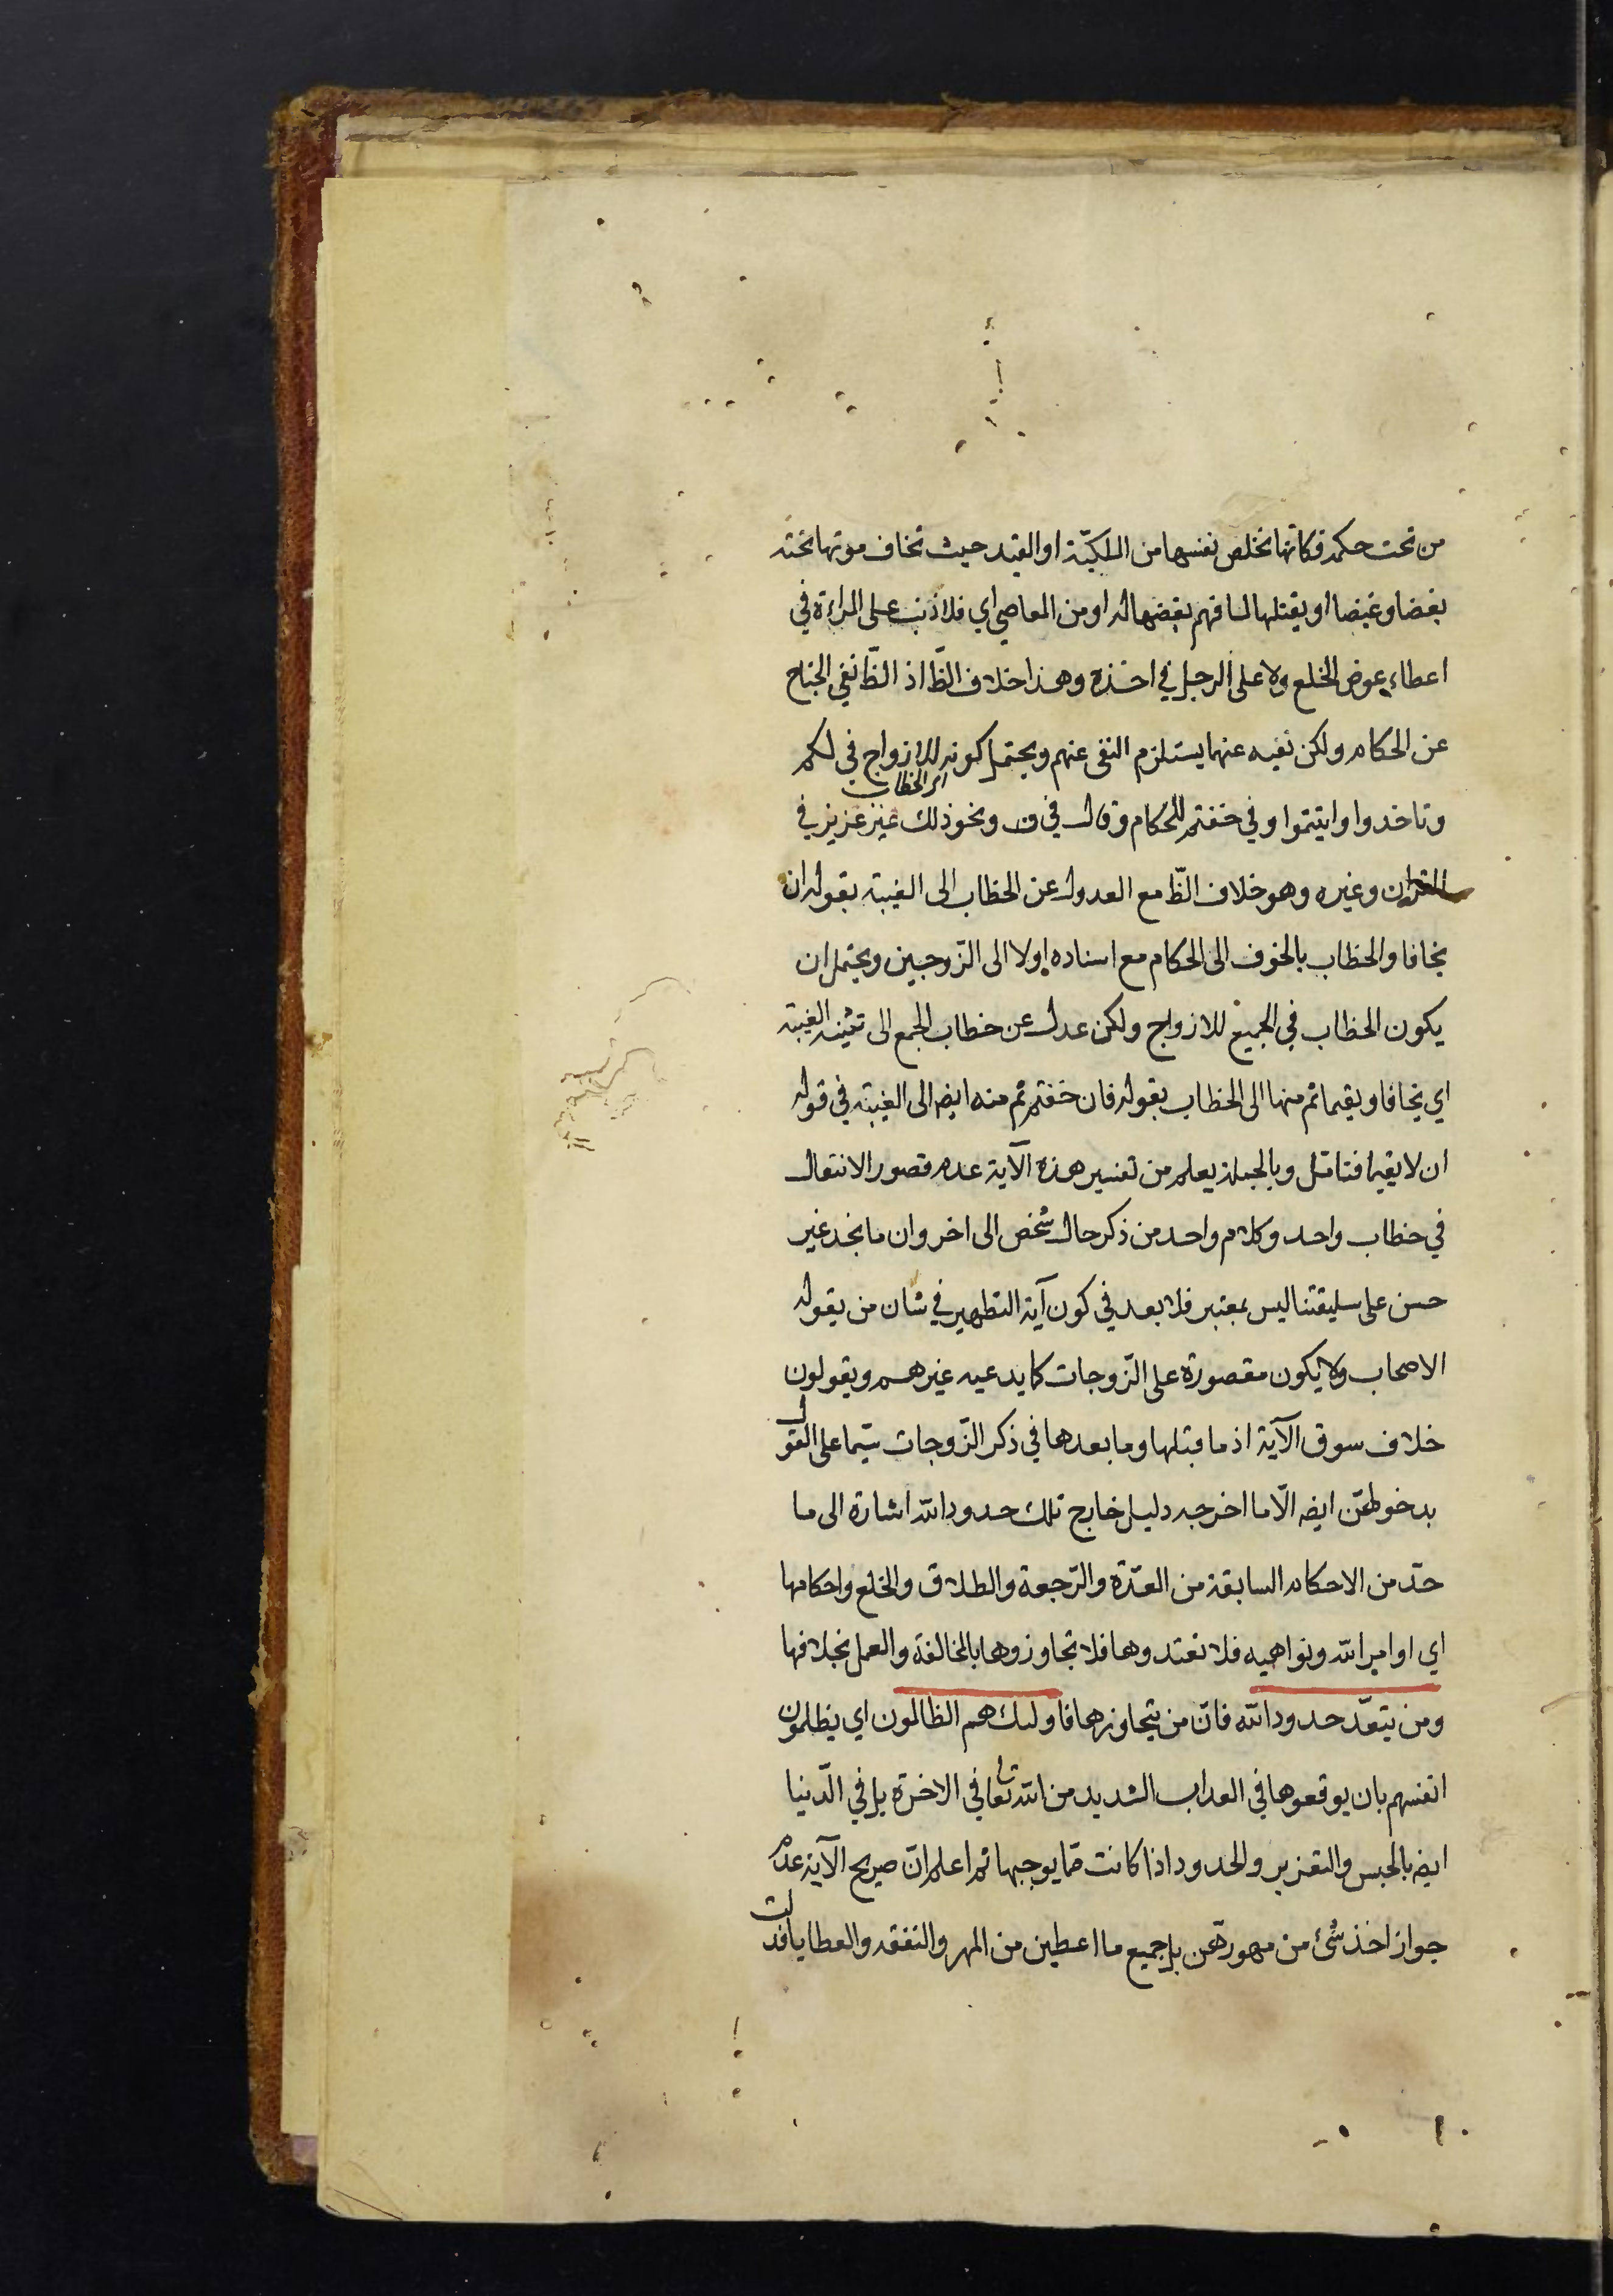 من تحت حكمه فكانها تخلص نفسها من الملكيّة او القيد حيث تخاف موتها تحته
بغضا وغيضا او يقتلها لما فهم بغضها له او من المعاصي اي فلا ذنب على المراءة في
اعطاء عوض الخلع ولا على الرجل في اخذه وهذا خلاف الظّ اذ الظّ نفي الجناح
عن الحكام ولكن نفيه عنهما يستلزم النفى عنهم ويحتمل كونه للازواج في لكم
اى الخطاب
وتاخذوا واتيتموا وفي خفتم للحكام وقال في ف ونحو ذلك غير عزيز في
القران وغيره وهو خلاف الظّ مع العدول عن الخطاب الى الغيبة بقوله ان
يخافا والخطاب بالخوف الى الحكام مع اسناده اولا الى الزّوجين ويحتمل ان
يكون الخطاب في الجميع للازواج ولكن عدل عن خطاب الجمع الى تثنيه الغيبة
اي يخافا ويقيما ثم منها الى الخطاب بقوله فان خفتم ثم منه ايضه الى الغيبة في قوله
ان لا يقيما فتامّل وبالجملة يعلم من تفسير هذه الآية عدم قصور الانتقال
في خطاب واحد وكلام واحد من ذكر حال شخص الى اخر وان ما نجد غير
حسن على سليقتنا ليس بمعتبر فلا بعد في كون آية التطهير في شان من يقوله
الاصحاب ولا يكون مقصورة على الزّوجات كما يدعيه غيرهم ويقولون
خلاف سوق الآية اذ ما قبلها وما بعدها في ذكر الزّوجات سيّما على القول
بدخولهنّ ايضه الّا ما اخرجه دليل خارج تلك حدود الله اشارة الى ما
حدّ من الاحكام السابقة من العدّة والرّجعة والطلاق والخلع واحكامها
اي اوامر الله ونواهيه فلا تعتدوها فلا تجاوزوها بالمخالفة والعمل بخلافها
ومن يتعدّ حدود الله فانّ من يتجاوزها فاولئك هم الظالمون اي يظلمون
انفسهم بان يوقعوها في العذاب الشديد من الله تعالى في الاخرة بل في الدّنيا
ايضه بالحبس والتعزير والحدود اذا كانت ممّا يوجبها ثم اعلم انّ صريح الآية عدم
جواز اخذ شئ من مهورهنّ بل جميع ما اعطين من المهر والنفقه والعطايا فدلت